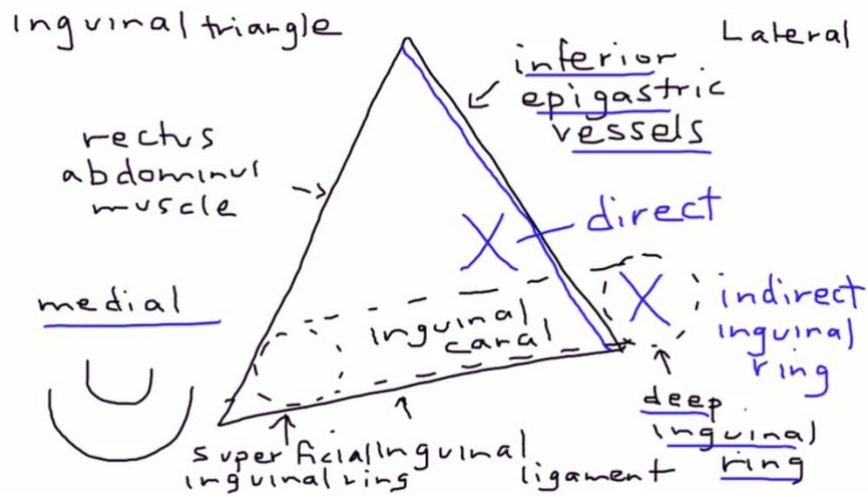 Inguinal triangle
Lateral
inferior
epigastric
vessels
rectus
abdominus
muscle
direct
medial
inguinal
canal
indirect
inguinal
ring
deep
inguinal
ring
superficial
inguinal ring
Inguinal
ligament